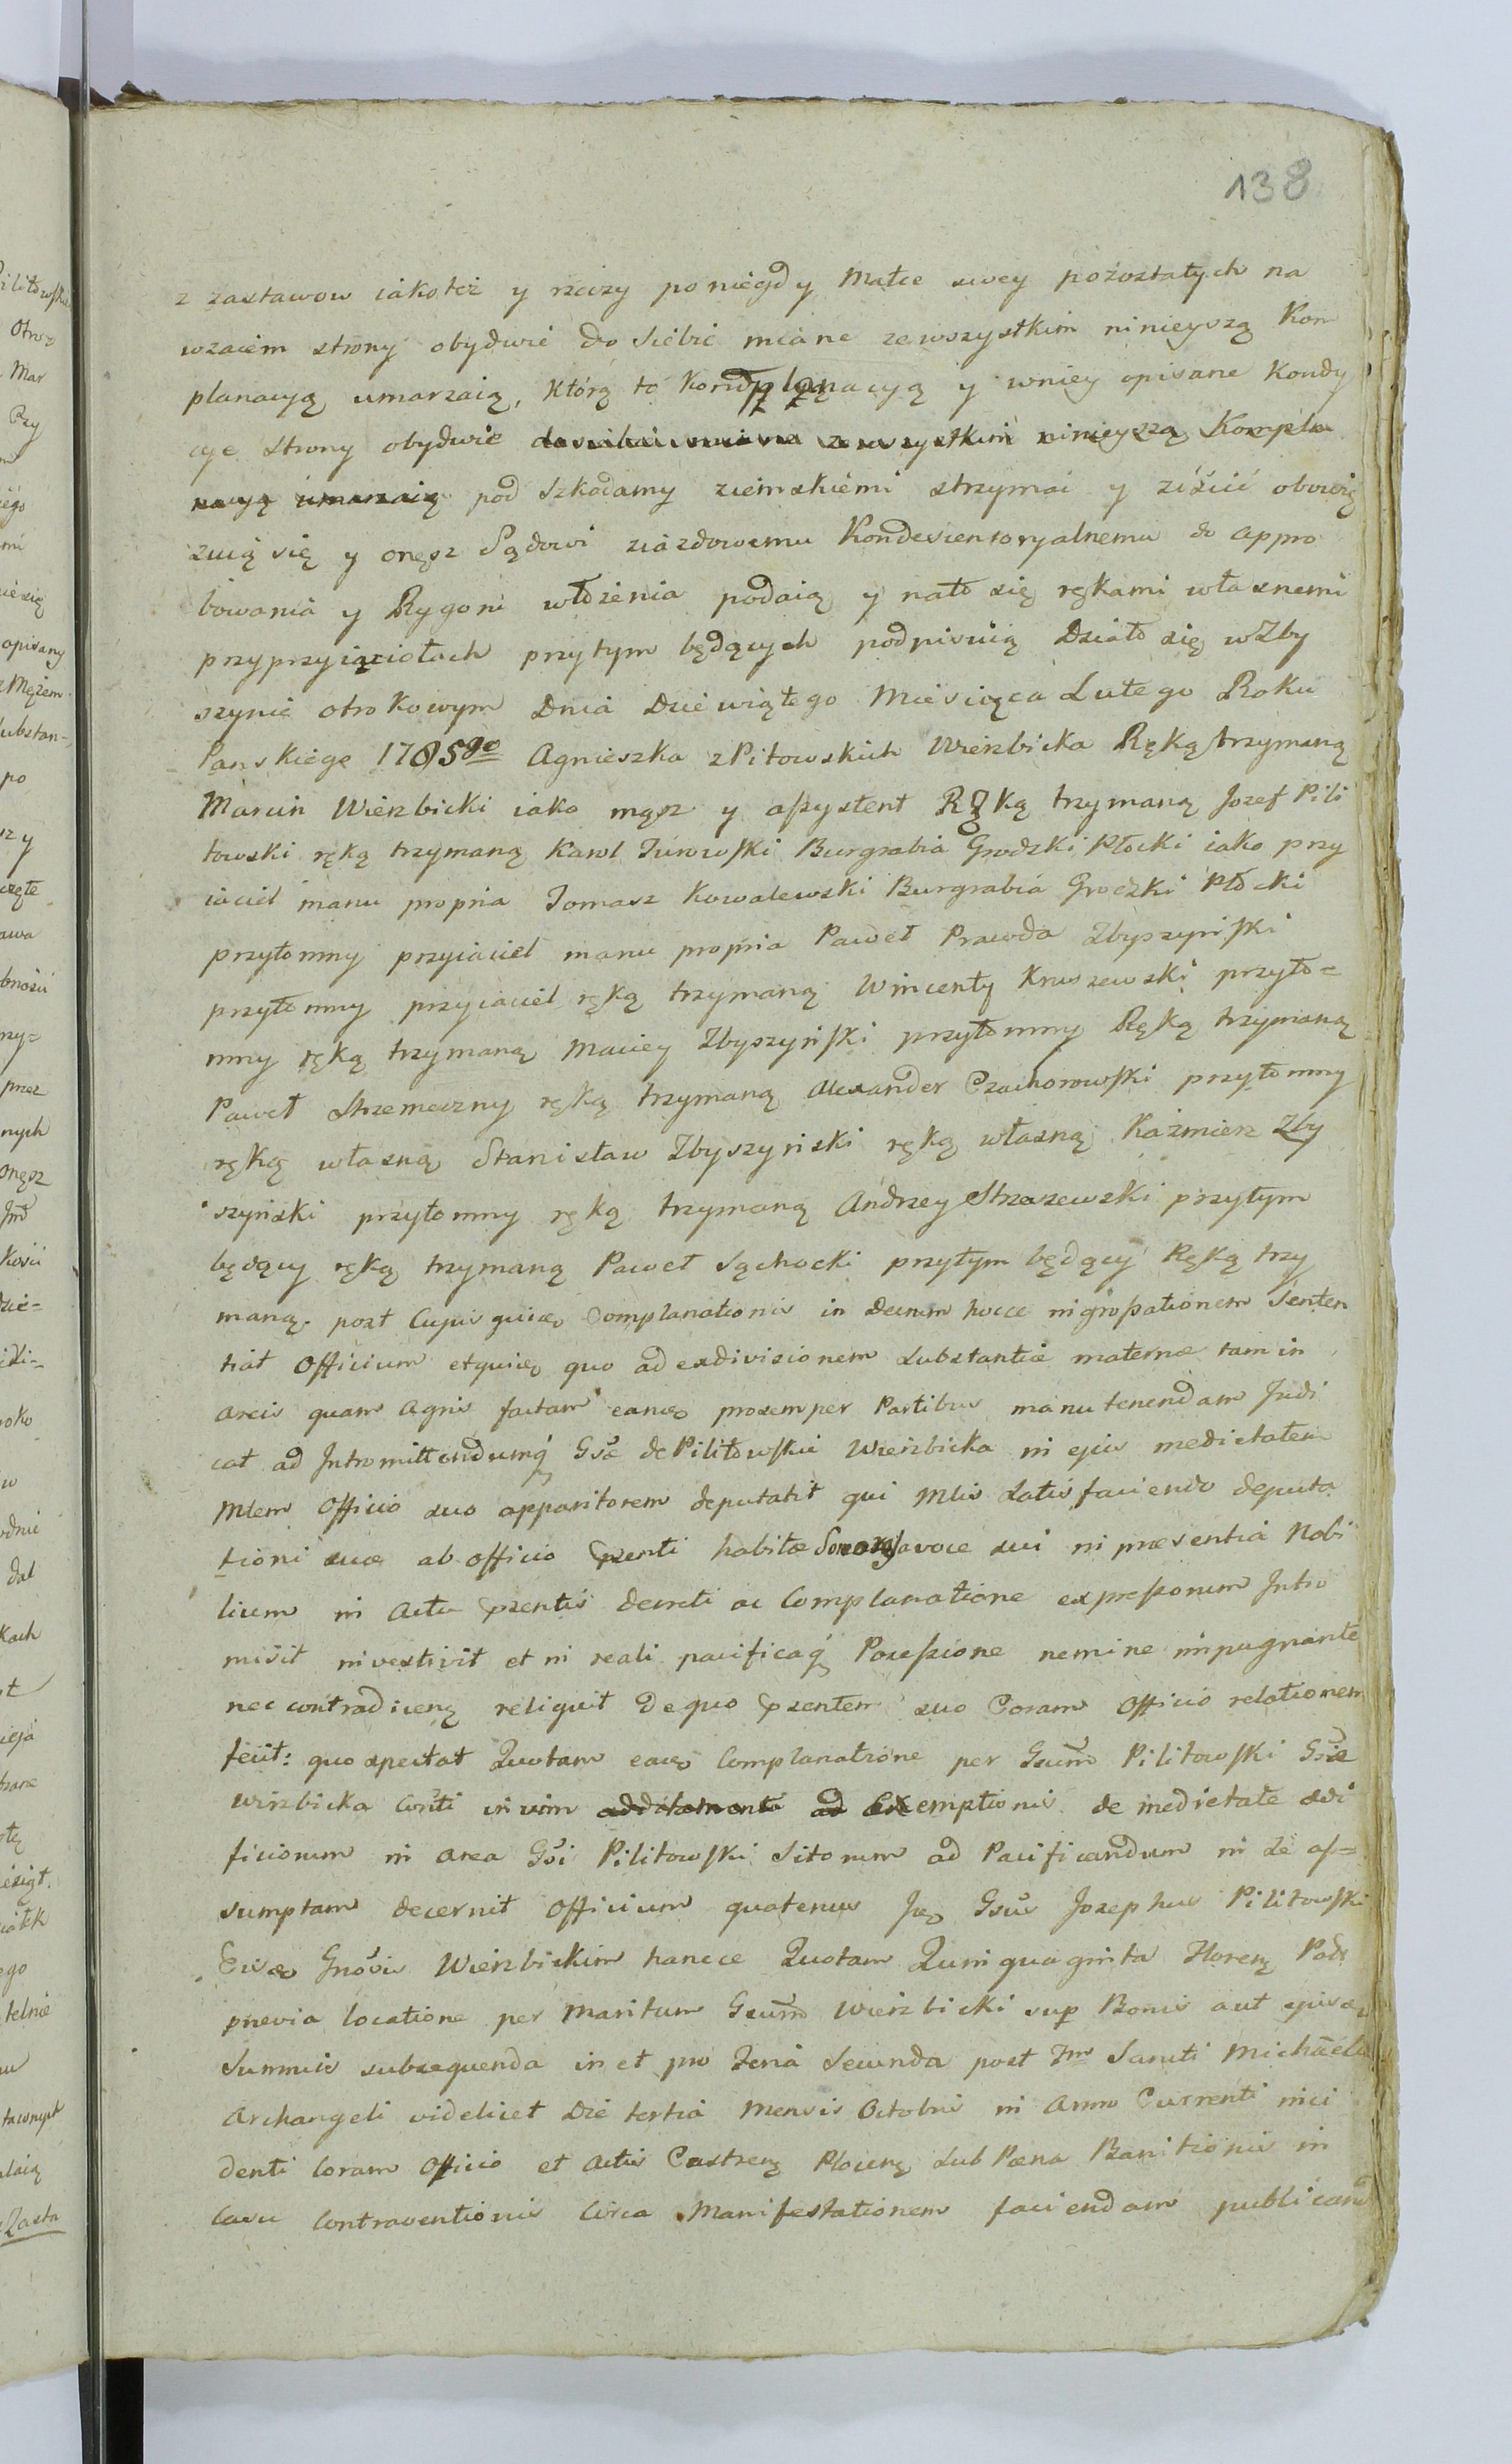 138
z zastawow iakoteż y rzeczy poniegdy Matce swey pozostałych na
wzaiem strony obydwie do siebie miane zewszystkim ninieyszą Kom
planacyą umarzaią, którą to Komplanacyą y wniey opisane Kondy
cye strony obydwie do siebie miane zewszystkim ninieyszą Kompla
nacyą umarzaią pod szkodamy ziemskiemi strzymać y ziścić obowią
zuią się y onęsz Sądowi ziazdowemu Kondescensoryalnemu do appro
bowania y Rygoru włożenia podaią y nato się rękami własnemi
przyprzyiaciołach przytym będących podpisuią Działo się wZby
szynie otrokowym Dnia Dziewiątego Miesiąca Lutego Roku
Panskiego 1785go Agnieszka zPitowskich Wierzbicka Ręką trzymaną
Marcin Wierzbicki iako mąsz y assystent Ręką trzymaną Jozef Pili
towski ręką trzymaną Karol Turowski Burgrabia Grodzki Płocki iako przy
iaciel manu propria Tomasz Kowalewski Burgrabia Grodzki Płocki
przytomny przyiaciel manu propria Paweł Prawda Zbyszyński
przytomny przyiaciel ręką trzymaną Wincenty Kruszewski przyto=
mny ręką trzymaną Maciey Zbyszyński przytomny Ręką trzymaną
Paweł Strzemeczny ręką trzymaną Alexander Czachorowski przytomny
ręką własną Stanisław Zbyszyński ręką własną Kaźmierz Zby
szyński przytomny ręką trzymaną Andrzey Strzeszewski przytym
będący ręką trzymaną Paweł Sąchocki przytym będący Ręką trzy
maną. post Cujus quidem Complanationis in decretum hocce ingrossationem Senten
tiat Officium et quidem quo ad exdivisionem substantiæ maternæ tam in
areis quam Agris factam eandem pro semper Partibus manutenendam Judi
cat ad Intromittendumq Gsæ de Pilitowskie Wierzbicka in ejus medietatem
Mlem Officio suo apparitorem deputatit qui Mlis satisfaciendo deputa
tioni suæ ab officio pzenti habitæ Sonora voce sui in præsentia Nobi
lium in Actu pzentis decreti ac Complanatione expressorum Intro
misit investivit et in reali pacificaq Possessione nemine impugnante
nec contradicenq reliquit De quo pzentem suo Coram Officio relationem
fecit: quo spectat Quotam eadem Complanatione per Gsum Pilitowski Gsæ
Wierzbicka Conti in vim additamenti ad Exemptionis de medietate ædi
ficiorum in area Gsi Pilitowski sitorum ad Pacificandum in se as=
sumptam decernit Officium quatenus Idem Gsus Josephus Pilitowski
Eisdem Gnosis Wierzbickim hancce Quotam Quinquaginta Floren Pols
previa locatione per Maritum Gsum Wierzbicki sup Bonis aut ejusdem
Summis subsequenda in et pro Feria Secunda post Fm Sancti Michaelis
Archangeli videlicet Die tertia Mensis Octobris in Anno Currenti inci
denti Coram Officio et Actis Castrenq Plocenq sub Pæna Banitionis in
Casu Contraventionis Circa Manifestationem faciendam publicand